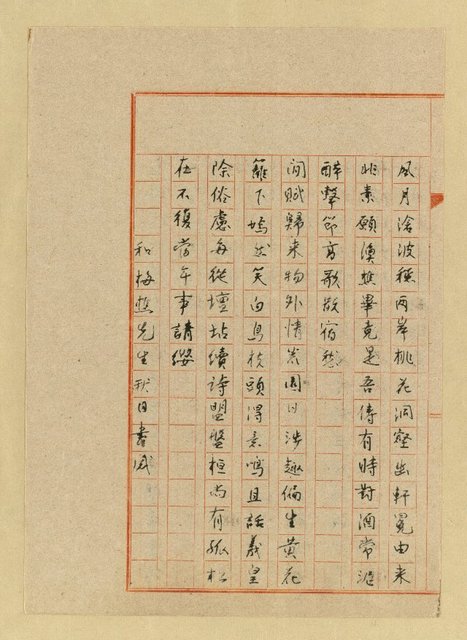 風月滄波穩兩岸桃花洞壑幽軒冕由来
非素願漁樵畢竟是吾儔有時對酒常
醉擊節高歌散宿愁
閒賦歸來物外情園日涉趣偏生黃花
籬下嫣然笑白鳥枝頭得意鳴且話羲皇
除俗慮每從壇坫續詩盟盤桓尚有孤松
在不復當年事請纓
和梅樵先生秋日書感